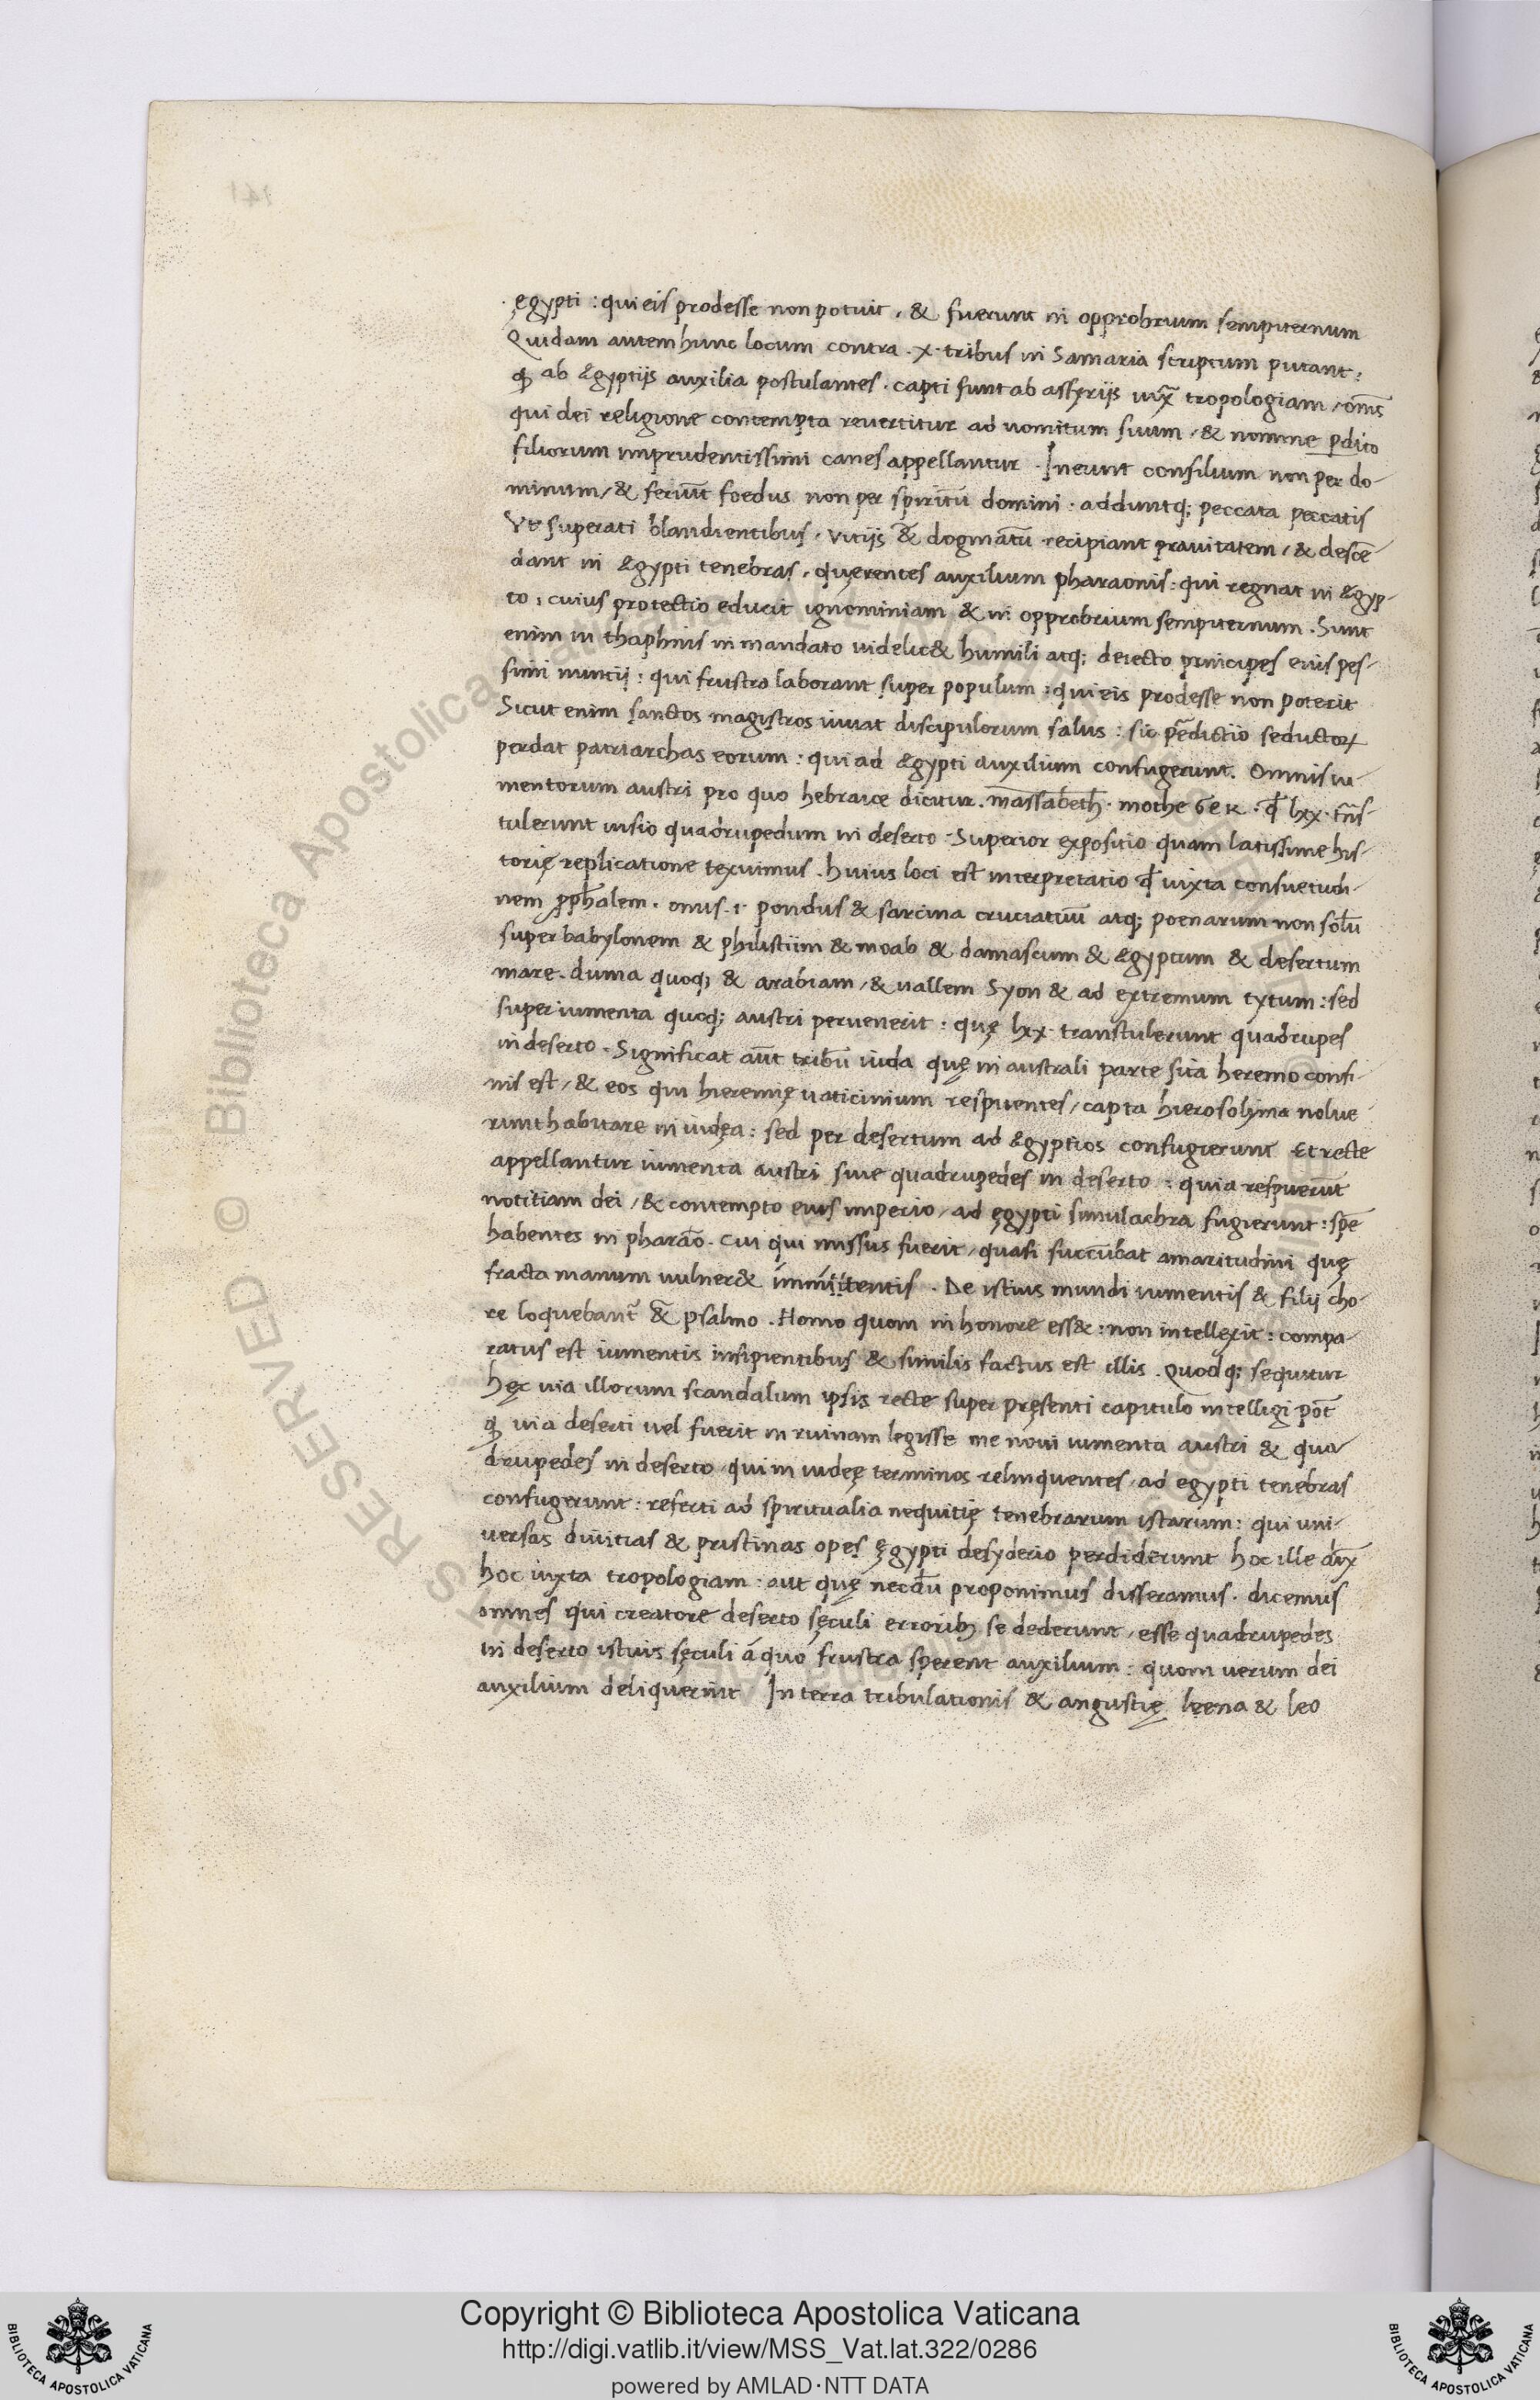 141
ęgypti : qui eis prodesse non potuit , & fuerunt in opprobrium sempiternum
Quidam autem hunc locum contra . x . tribus in Samaria scriptum putant :
ꝙ ab ęgyptijs auxilia postulantes . capti sunt ab assyrijs iuxͣ tropologiam / oms̄
qui dei religione contempta revertitur ad vomitum suum , & nomine p̱dito
filiorum imprudentissimi canes appellantur . Ineunt consilium non per do-
minum , & feriūt foedus non per spiritū domini . adduntq; peccata peccatis
Vt superati blandientibus , vitijs &̄ dogmatū recipiant pravitatem , & descē-
dant in ęgypti tenebras , quęrentes auxilium pharaonis : qui regnat in ęgyp-
to : cuius protectio educit ignominiam & in opprobrium sempiternum . Sunt
enim in thaphnis in mandato videlic& humili atq; deiecto principes eius pes-
simi nuncij : qui frustra laborant super populum : qui eis prodesse non poterit
Sicut enim sanctos magistros iuvat discipulorum salus : sic p̄edictio seductoꝝ
perdat patriarchas eorum : qui ad ęgypti auxilium confugerunt . Omnis iu-
mentorum austri pro quo hebraice dicitur . massabeth . mothe GEK . qđ lxx . trn̄s-
tulerunt visio quadrupedum in deserto . Superior expositio quam latissime his-
torię replicatione texuimus . huius loci est interpretatio qđ iuxta consuetudi-
nem ꝓph̄alem . onus . i . pondus & sarcina cruciatuū atq; poenarum non solū
super babylonem & philistiim & moab & damascum & ęgyptum & desertum
mare . duma quoq; & arabiam , & vallem Syon & ad extremum tytum : sed
super iumenta quoq; austri pervenerit : quę lxx . transtulerunt quadrupes
in deserto . Significat aūt tribū iuda quę in australi parte sita heremo confi-
nis est , & eos qui hieremię vaticinium respuentes , capta hierosolyma nolue-
runt habitare in iudęa : sed per desertum ad ęgyptios confugierunt Et recte
appellantur iumenta austri sive quadrupedes in deserto : quia respuerūt
notitiam dei , & contempto eius imperio , ad ęgypti simulachra fugierunt : spē
habentes in pharaō . cui qui missus fuerit , quasi succūbat amaritudini quę
fracta manum vulner& immittentis . De istius mundi iumentis & filij cho-
re loquebant᷑ &̄ psalmo . Homo quom in honore ess& : non intellexit : compa-
ratus est iumentis insipientibus & similis factus est illis . Quodq; sequitur
hęc via illorum scandalum ipsis recte super pręsenti capitulo intelligi pōt
ꝙ via deserti vel fuerit in ruinam legisse me novi iumenta austri & qua-
drupedes in deserto , qui in iudeę terminos relinquentes , ad egypti tenebras
confugerunt : referri ad spiritualia nequitię tenebrarum istarum : qui uni-
versas divitias & pristinas opes ęgypti desyderio perdiderunt hoc ille dix̄
hoc iuxta tropologiam : aut quę necdū proponimus disseramus . dicemus
omnes qui creatorē deserto sęculi erroribꝫ se dederunt , esse quadrupedes
in deserto istius sęculi á quo frustra sperent auxilium : quom verum dei
auxilium deliquerint In terra tribulationis & angustię leena & leo
Copyright © Biblioteca Apostolica Vaticana
http://digi.vatlib.it/view/MSS_Vat.lat.322/0286
powered by AMLAD·NTT DATA
BIBLIOTECA APOSTOLICA VATICANA
BIBLIOTECA APOSTOLICA VATICANA